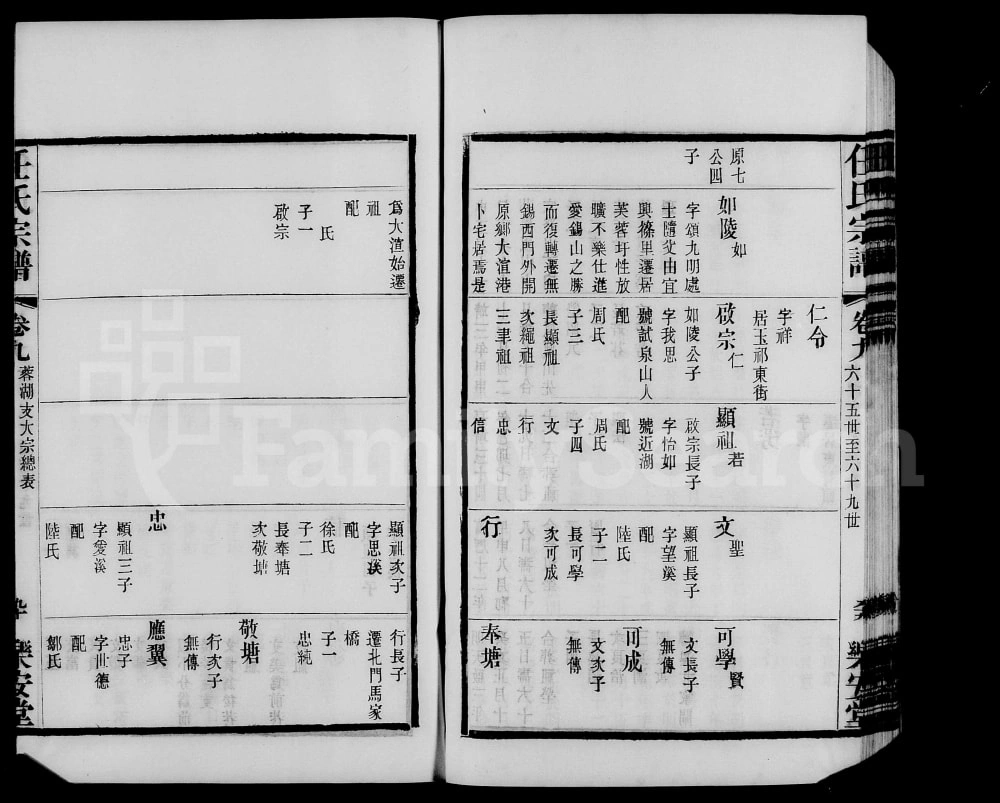 任氏宗譜
卷九
六十五世至六十九世
樂安堂
原七
公四
子
如陵 如
字頌九明處
士隨父由宜
興篠里遷居
芙蓉圩性放
曠不樂仕進
愛錫山之勝
而復轉遷無
錫西門外開
原鄉大渲港
卜宅居焉是
仁令
字祥
居玉祁東街
啟宗 仁
如陵公子
字我思
號試泉山人
配
周氏
子三
長顯祖
次繩祖
三聿祖
顯祖 若
啟宗長子
字怡如
號近湖
配
周氏
子四
文
行
忠
信
文 聖
顯祖長子
字望溪
配
陸氏
子二
長可學
次可成
行
可學 賢
文長子
無傳
可成
文次子
無傳
奉塘
任氏宗譜
卷九
蓉湖支大宗總表
樂安堂
爲大渲始遷
祖
配
氏
子一
啟宗
顯祖次子
字思溪
配
徐氏
子二
長奉塘
次敬塘
忠
顯祖三子
字愛溪
配
陸氏
行長子
遷北門馬家
橋
子一
忠純
敬塘
行次子
無傳
應翼
忠子
字世德
配
鄒氏
FamilySearch